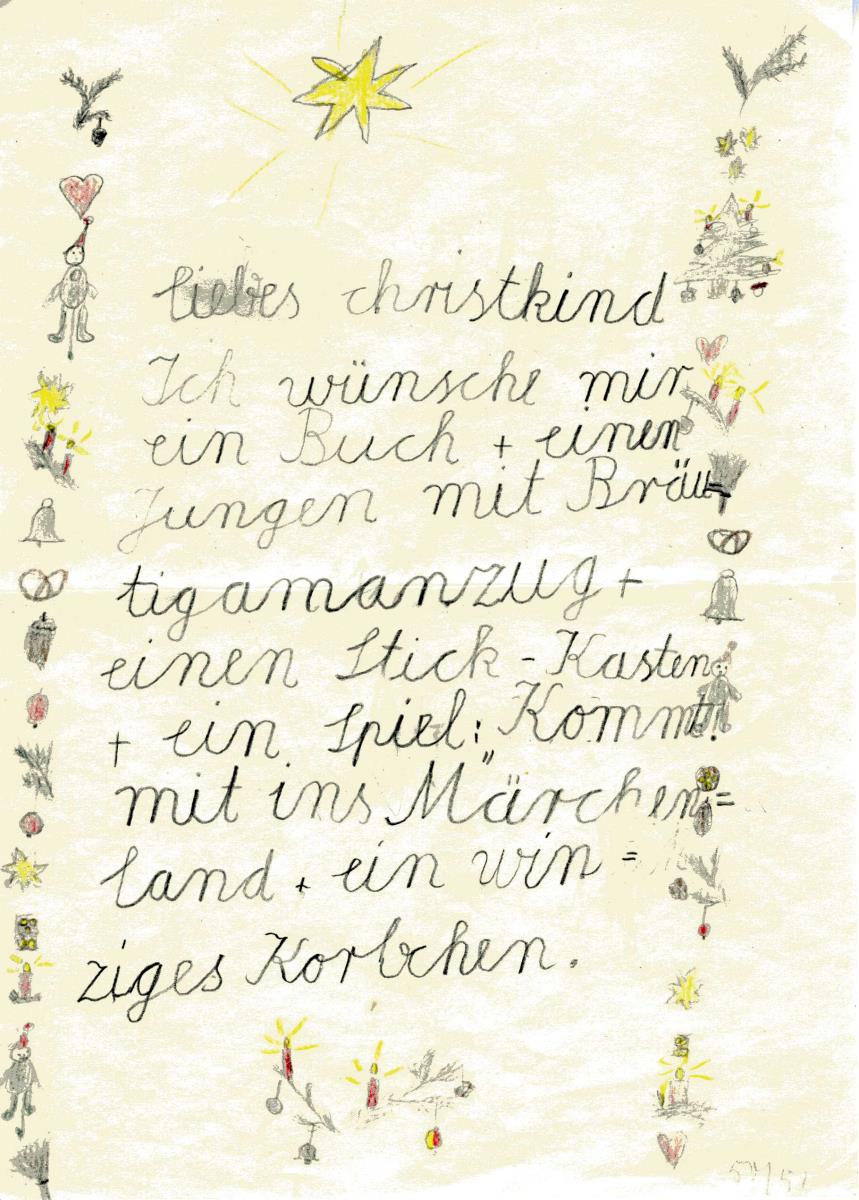 liebes christkind
Ich wünsche mir
ein Buch + einen
Jungen mit Bräu=
tigamanzug +
einen Stick-Kasten
+ ein Spiel: „Kommt!
mit ins Märchen=
land + ein win=
ziges Korbchen.